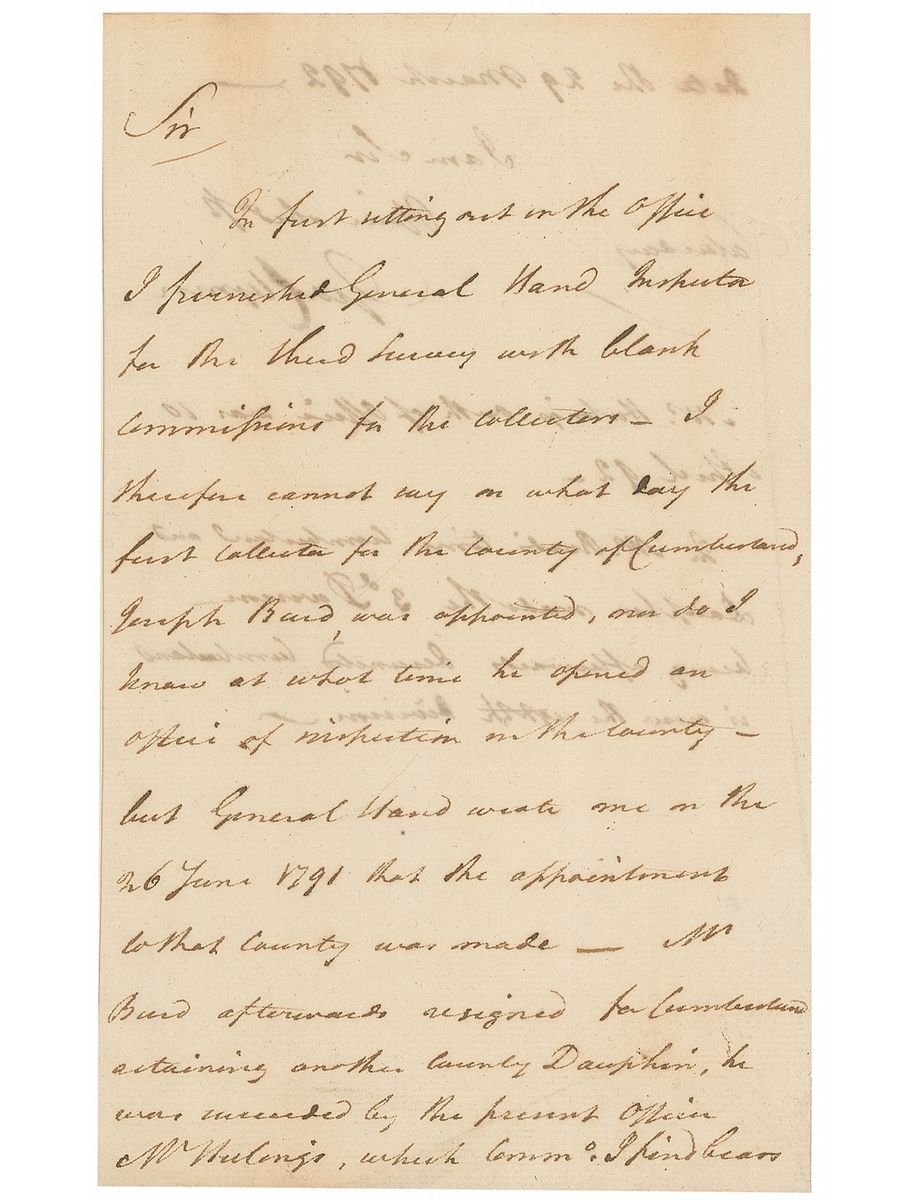 Sir
In first setting out in the Office
I furnished General Hand Inspector
for the third Survey with blank
Commissions for the Collectors — I
therefore cannot say on what day the
first Collector for the County of Cumberland,
Joseph Baird, was appointed, nor do I
know at what time he opened an
Office of inspection in the County —
but General Hand wrote me on the
26 June 1791 that the appointment
to that County was made — Mr
Baird afterwards resigned for Cumberland
retaining another County Dauphin, he
was succeeded by the present Officer
Mr Hulings, which Commn. I find bears